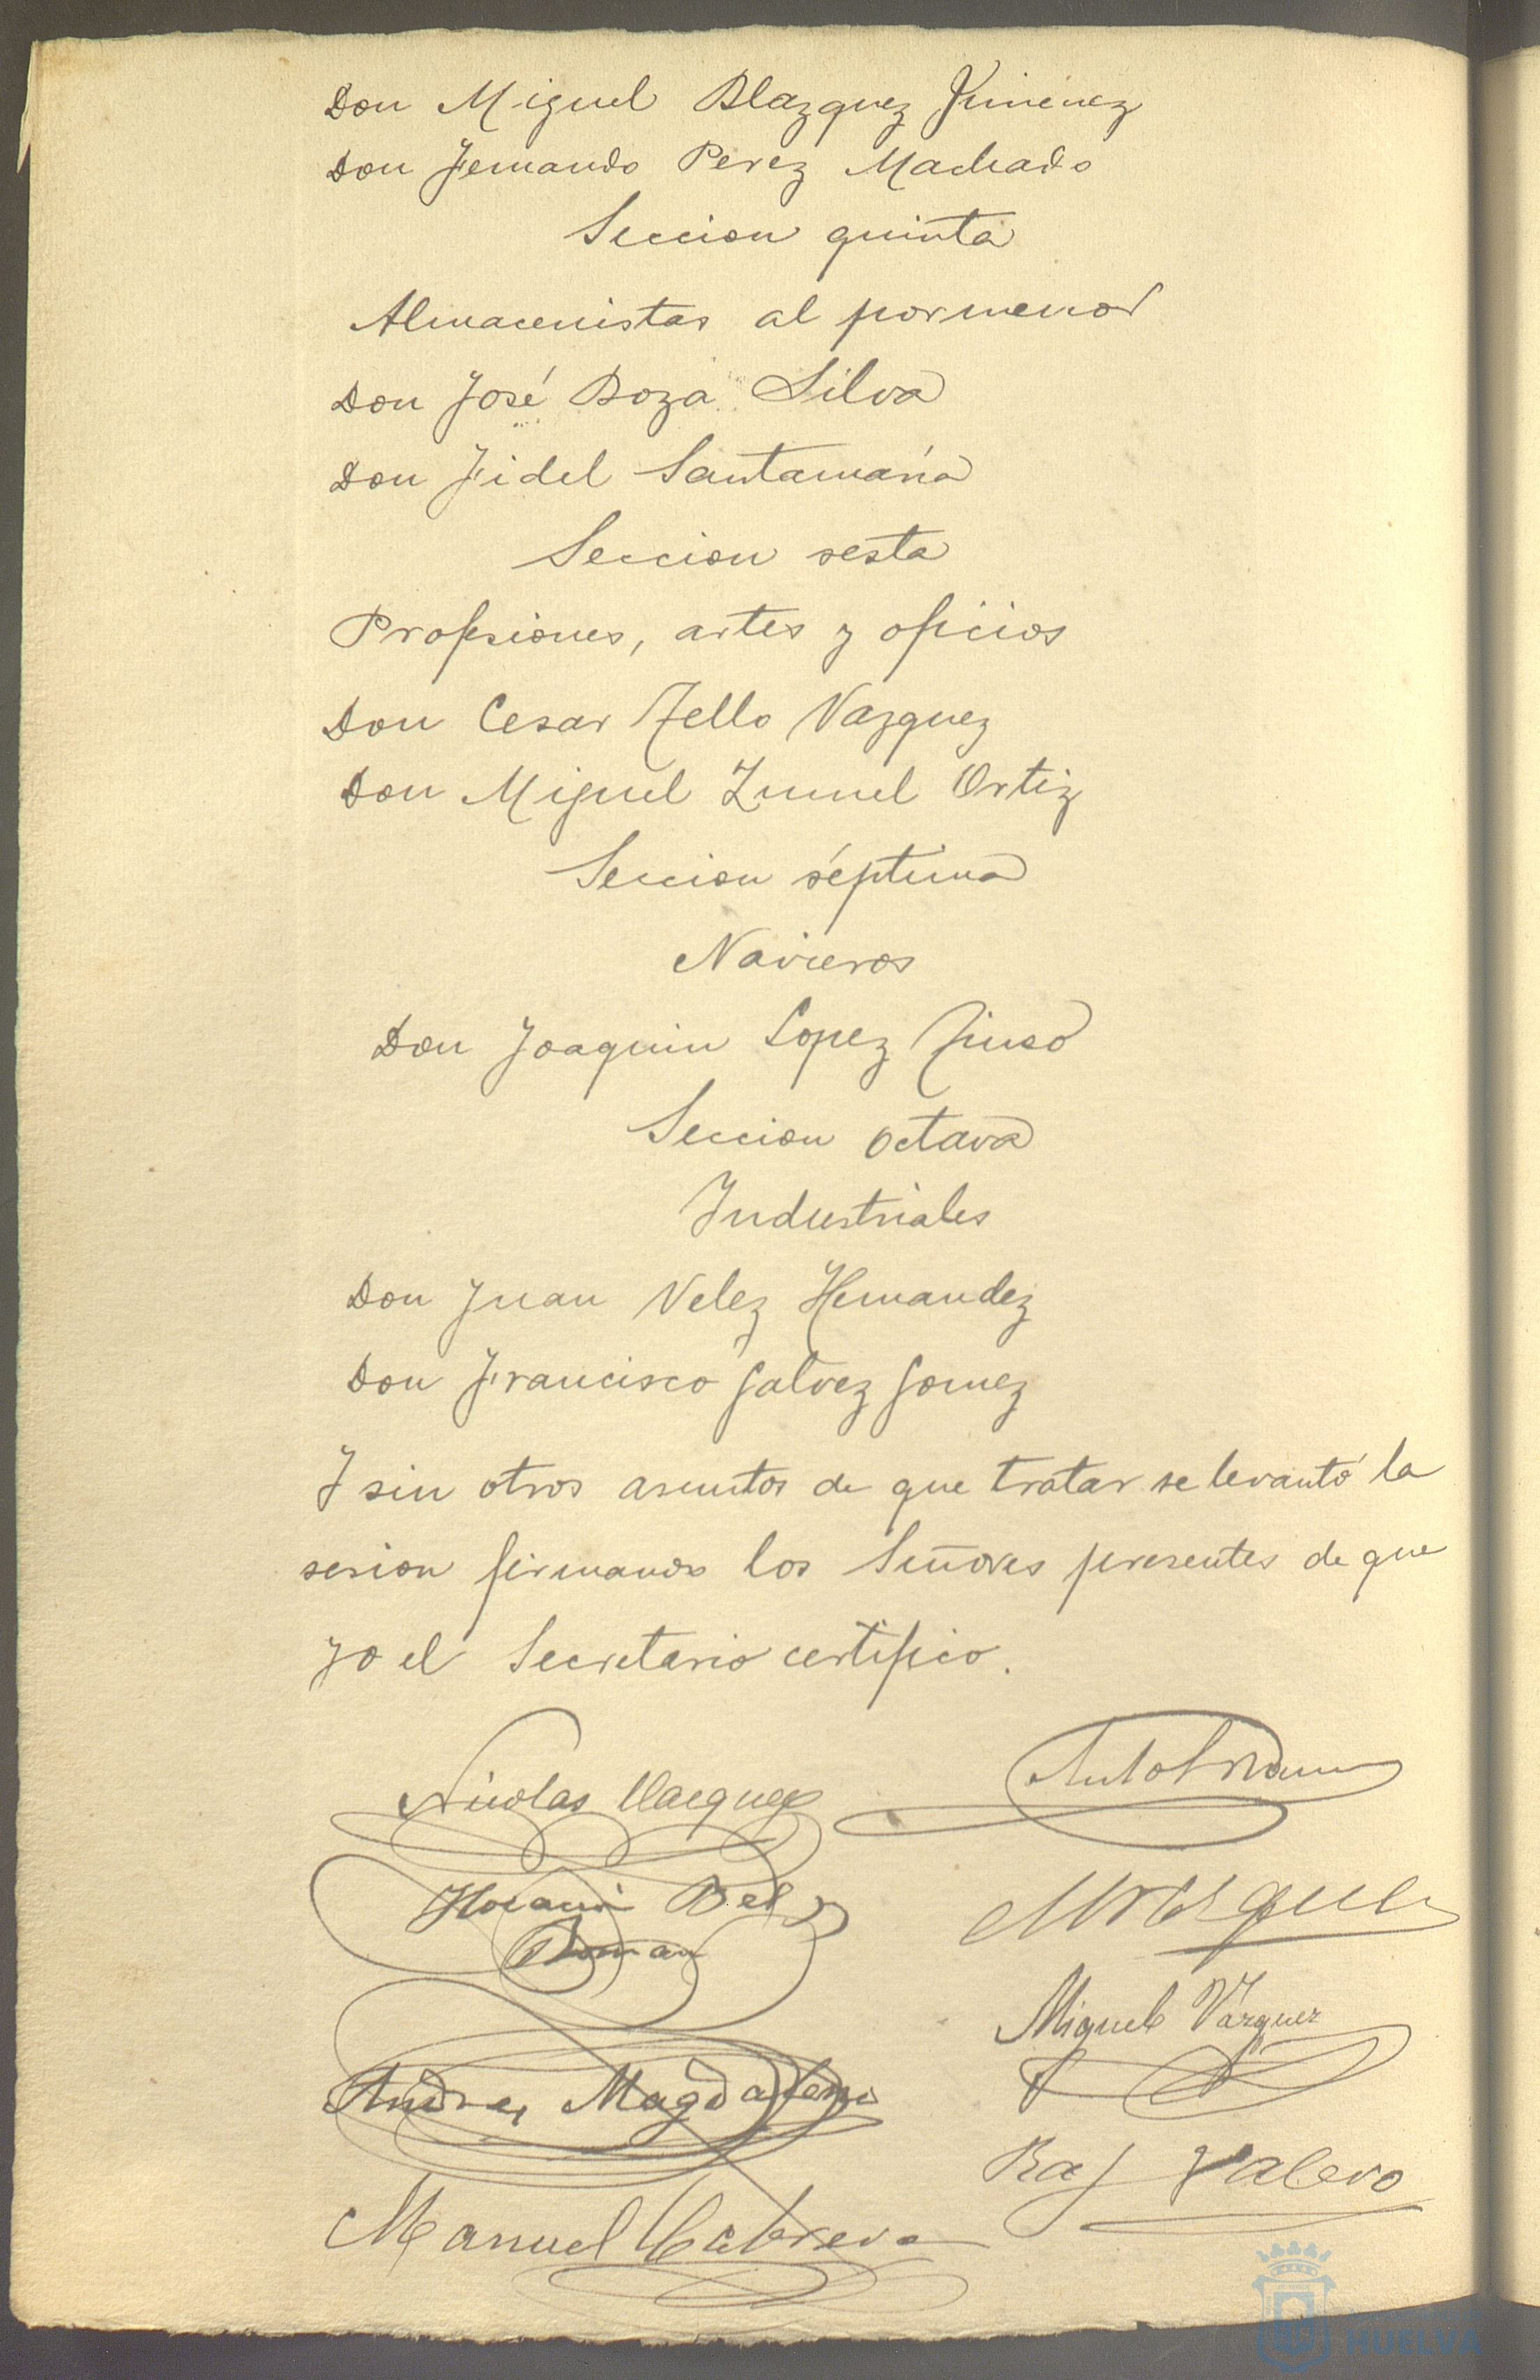 Don Miguel Blazquez Jimenez
Don Fernando Perez Machado
Seccion quinta
Almacenistas al por menor
Don José Boza Silva
Don Fidel Santamaría
Seccion sesta
Profesiones, artes y oficios
Don Cesar Tello Vazquez
Don Miguel Zumel Ortiz
Seccion séptima
Navieros
Don Joaquin Lopez
Seccion octava
Industriales
Don Juan Velez Hernandez
Don Francisco Galvez Gomez
Y sin otros asuntos de que tratar se levantó la
sesion firmando los Señores presentes de que
yo el Secretario certifico.
Nicolas Vazquez
Horacio Bel
Roman
Miguel Vázquez
Andres Magdaleno
Raf Valero
Manuel Cabrera
HUELVA